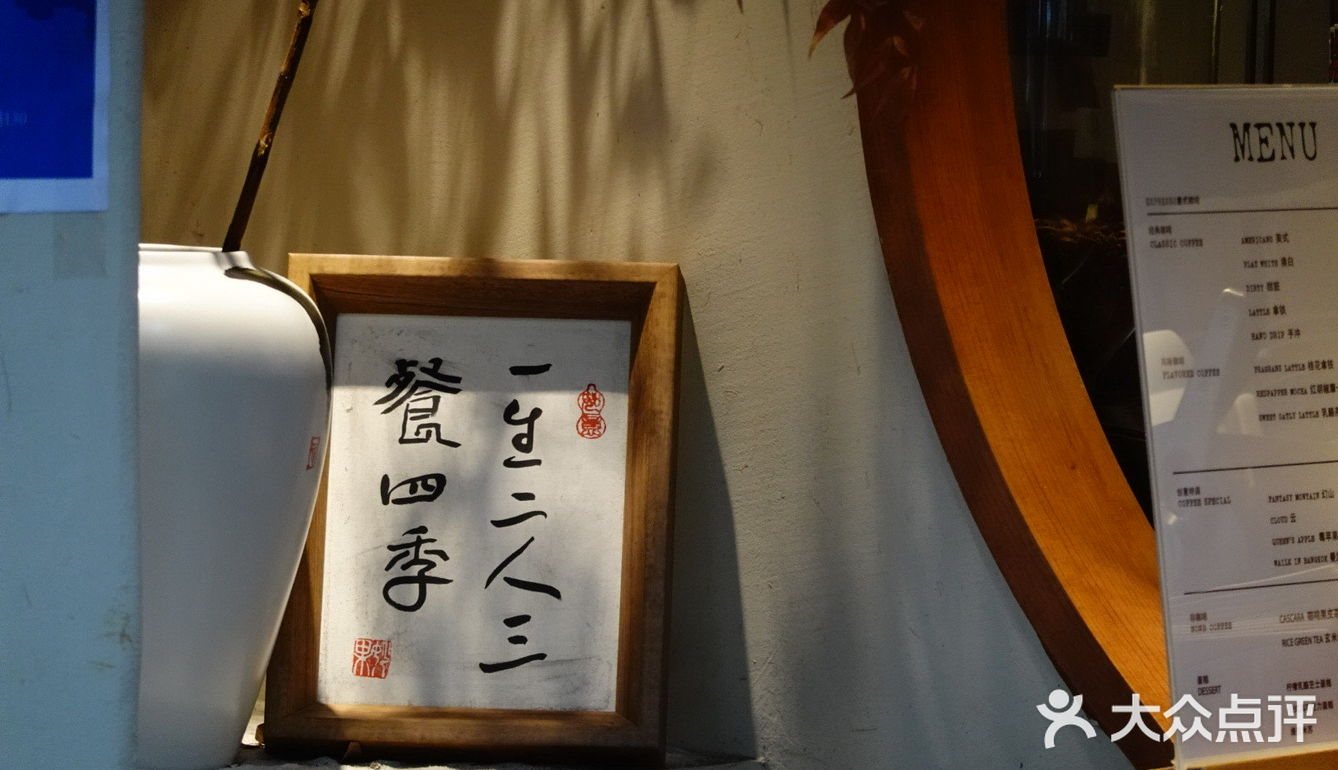 一生二人三
餐四季
MENU
ESPRESSO意式咖啡
经典咖啡
CLASSIC COFFEE
AMERICANO 美式
FLAT WHITE 澳白
DIRTY 脏脏
LATTLE 拿铁
HAND DRIP 手冲
风味咖啡
FLAVORED COFFEE
LATTLE 桂花拿铁
REDPAPPER MOCHA 红胡椒摩
SWEET OATLY LATTLE
创意特调
COFFEE SPECIAL
FANTASY MONTAIN 幻山
CLOUD 云
QUEEN'S APPLE 毒苹果
WAILK IN BANGKOK
COFFEE
CASCARA 咖啡果皮茶
RICE GREEN TEA 玄米
蛋糕
DESSERT
柠檬乳酪芝士蛋糕
大众点评